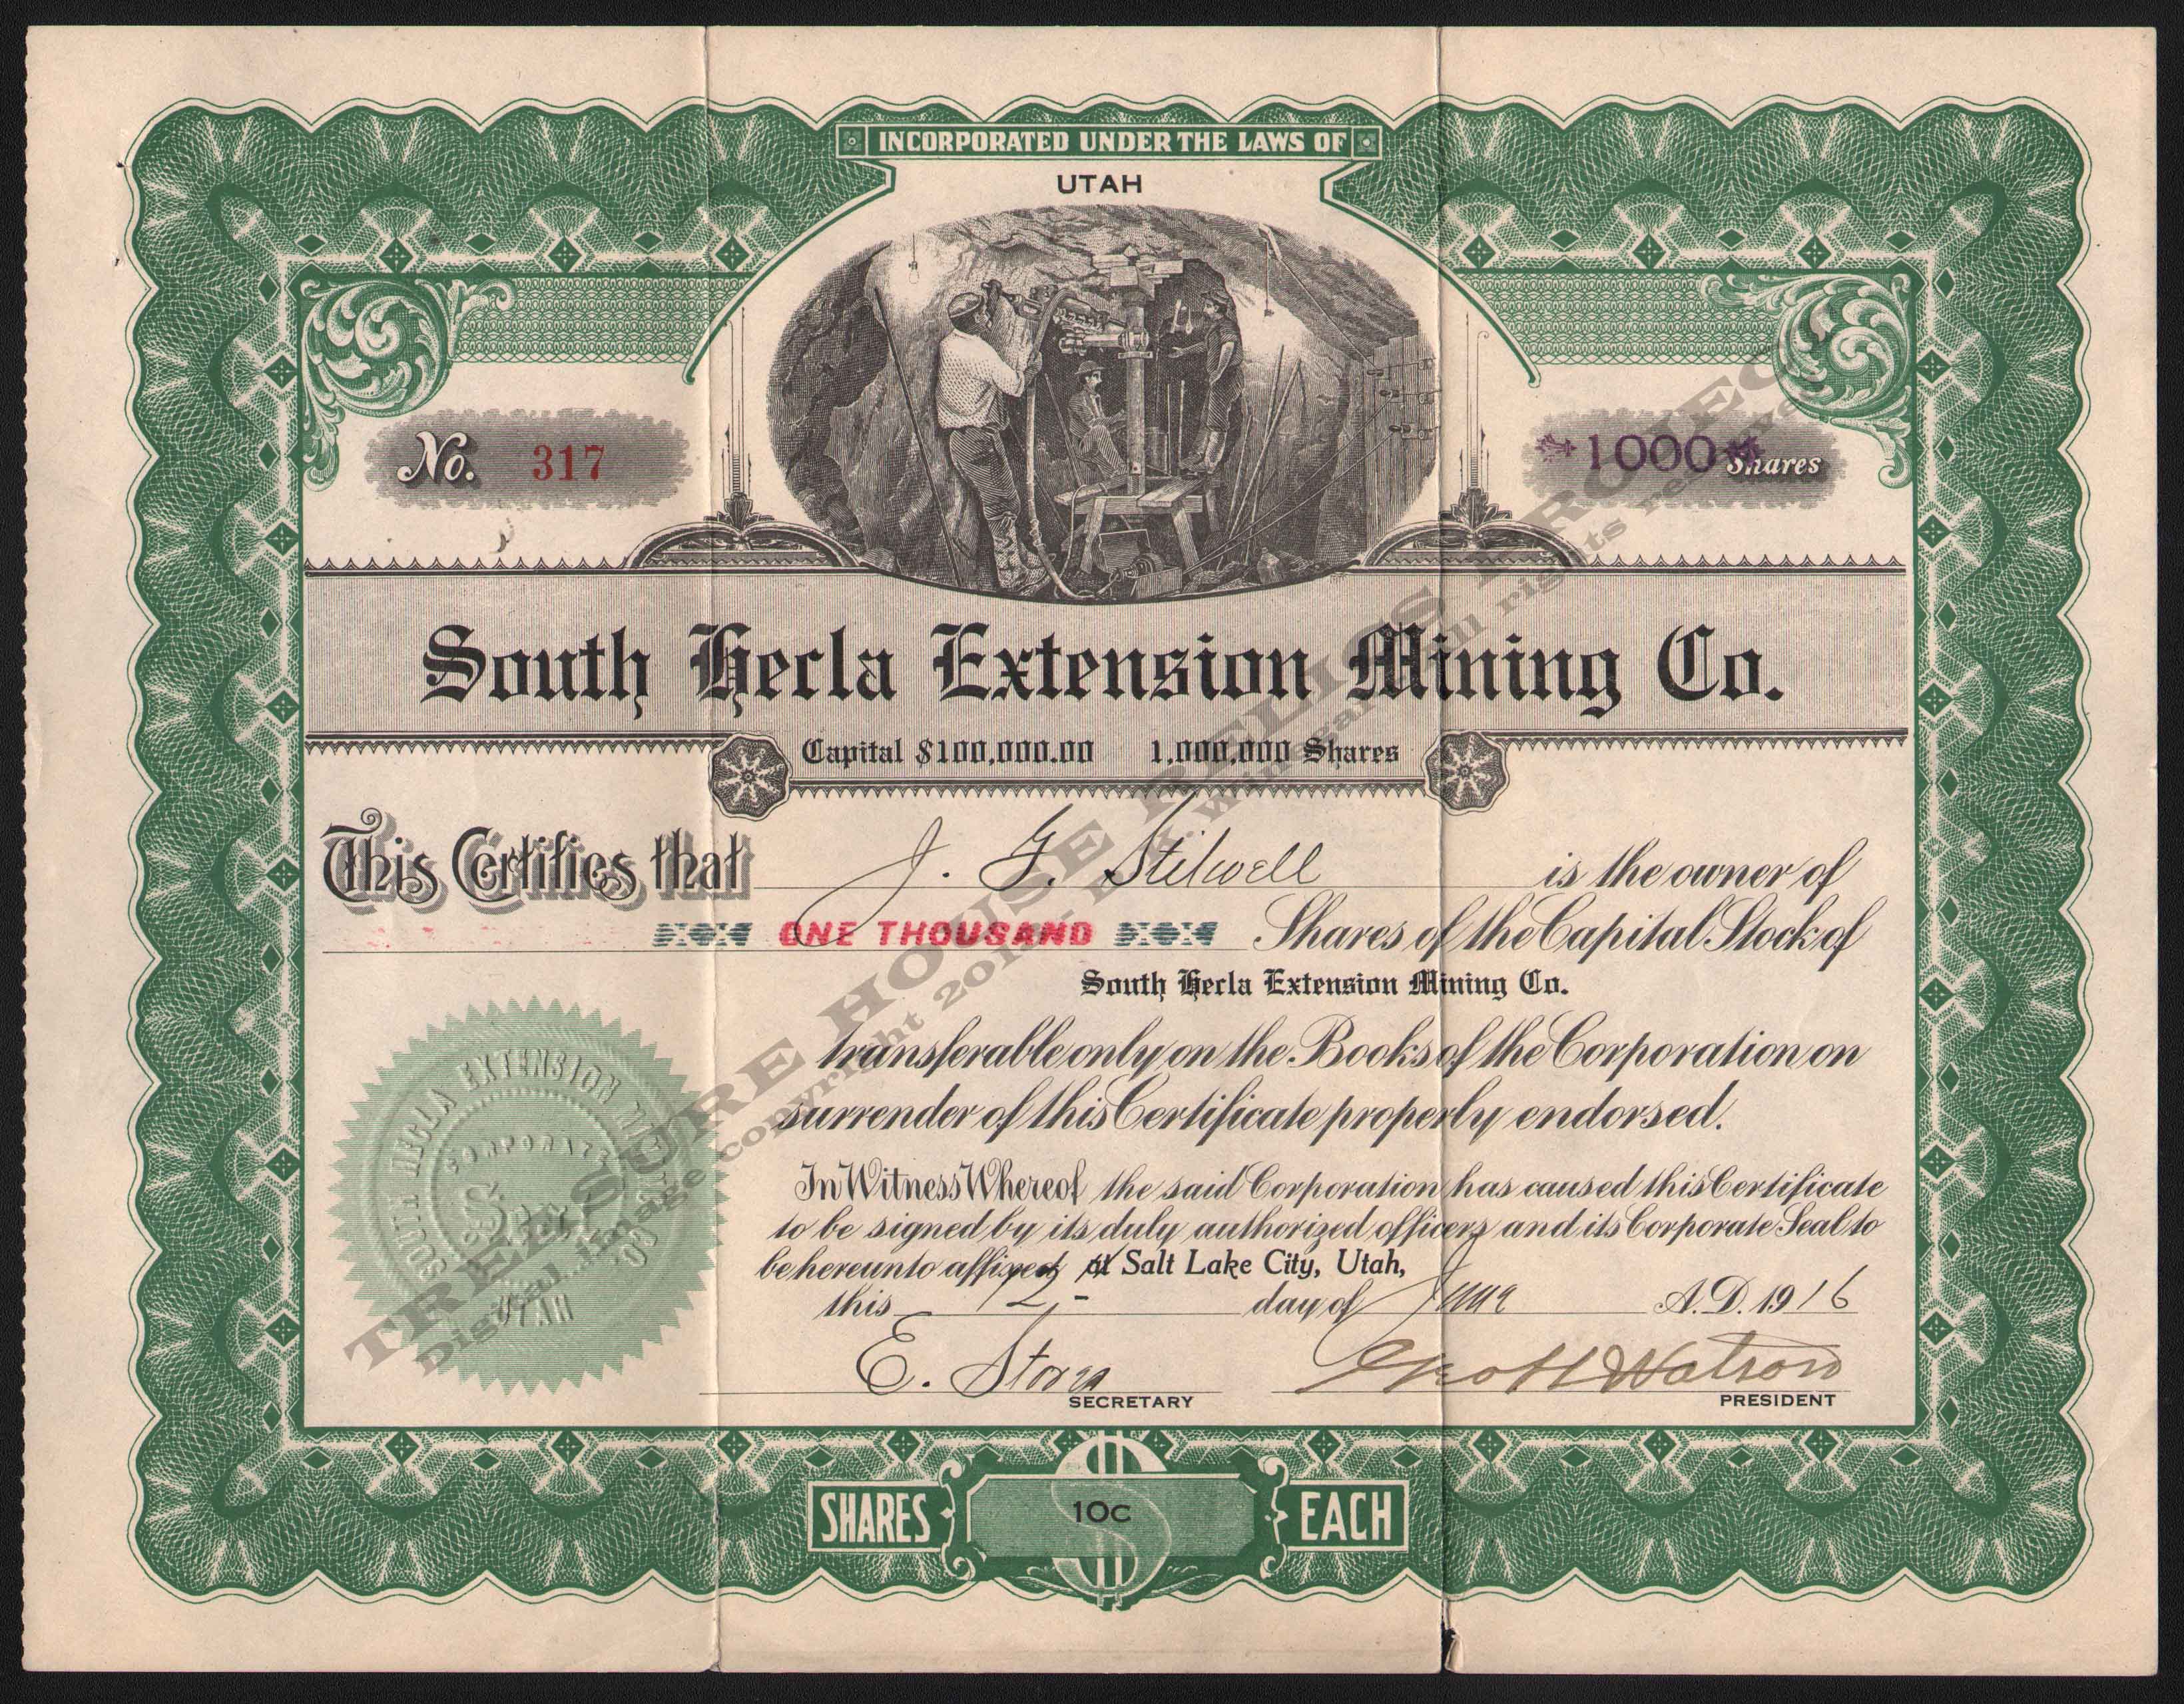 INCORPORATED UNDER THE LAWS OF
UTAH
No. 317
1000 Shares
South Hecla Extension Mining Co.
Capital $100,000.00 1,000,000 Shares
This Certifies that J. G. Stilwell is the owner of
ONE THOUSAND Shares of the Capital Stock of
South Hecla Extension Mining Co.
transferable only on the Books of the Corporation on
surrender of this Certificate properly endorsed.
In Witness Whereof the said Corporation has caused this Certificate
to be signed by its duly authorized officers and its Corporate Seal to
be hereunto affixed at Salt Lake City, Utah,
this 12 day of June A.D. 1916
E. Stores
SECRETARY
Geo H Watson
PRESIDENT
SOUTH HECLA EXTENSION MINING CO
CORPORATE
SEAL
UTAH
SHARES 10C EACH
TREASURE HOUSE RELICS PROJECT
Digital image copyright all rights reserved